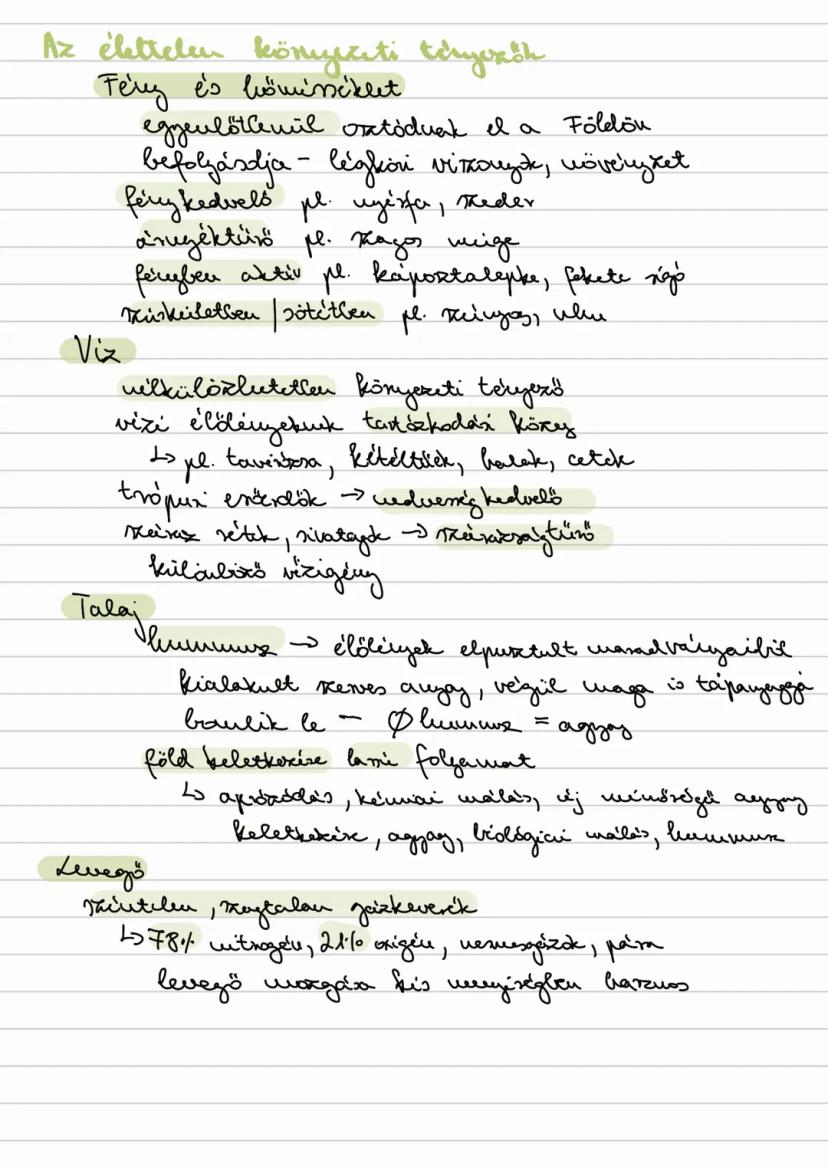 Az élettelen környezeti tényezők
Fény és hőmérséklet
egyenlőtlenül osztódnak el a Földön
befolyásolja - légköri viszonyok, növényzet
fénykedvelő pl. nyírfa, szeder
árnyéktűrő pl. szagos müge
fényben aktív pl. káposztalepke, fekete rigó
szürkületben / sötétben pl. szúnyog, uhu
Víz
nélkülözhetetlen környezeti tényező
vízi élőlényeknek tartózkodási közeg
↳ pl. tavirózsa, kétéltűek, halak, cetek
trópusi esőerdők → nedvességkedvelő
száraz rétek, sivatagok → szárazságtűrő
különböző vízigény
Talaj
humusz → élőlények elpusztult maradványaiból
kialakult szerves anyag, végül maga is tápanyaggá
bomlik le - Ø humusz = agyag
föld keletkezése lassú folyamat
↳ aprózódás, kémiai mállás, új minőségű anyag
keletkezése, agyag, biológiai mállás, humusz
Levegő
színtelen, szagtalan gázkeverék
↳ 78% nitrogén, 21% oxigén, nemesgázok, pára
levegő mozgása kis mennyiségben hasznos